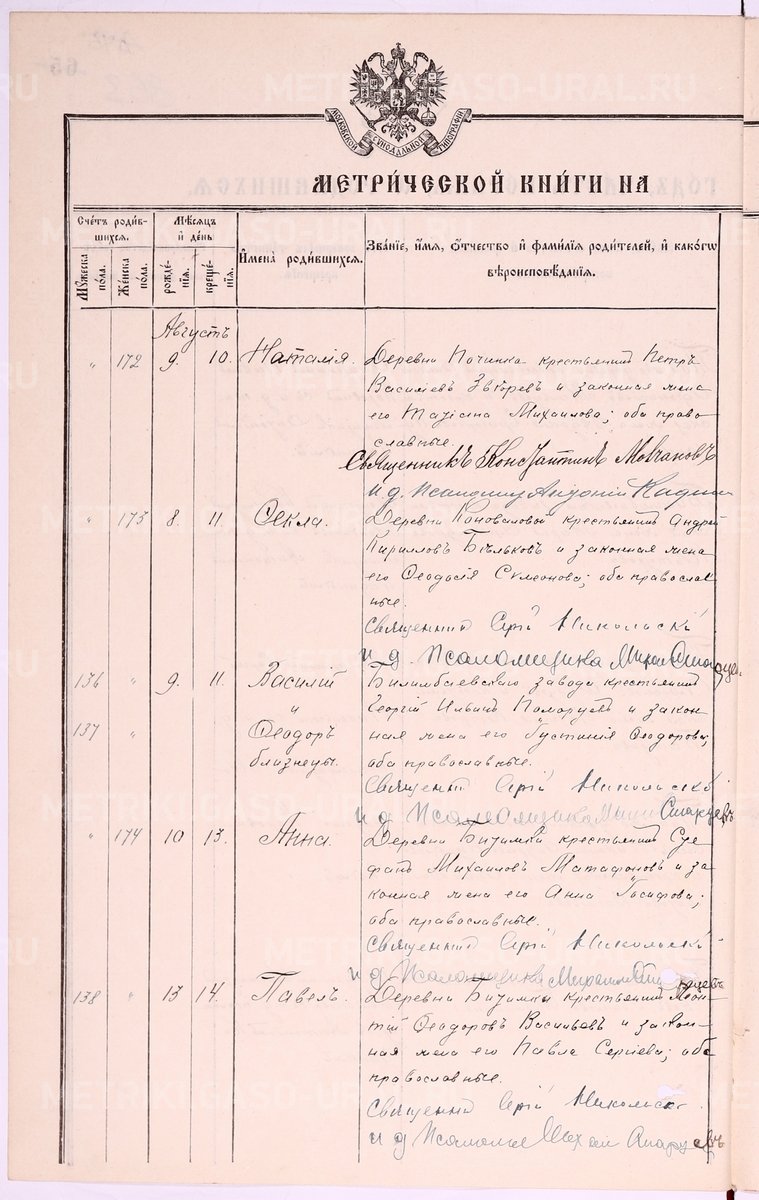 МОСКОВСКОЙ СѴНОДАЛЬНОЙ ТИПОГРАФІИ
МЕТРИ́ЧЕСКОЙ КНИ́ГИ НА
Сче́тъ роди́в-
шихся.
Мѣ́сяцъ
и҆ де́нь
И҆мена̀ роди́вшихся.
Зва́нїе, и҆́мя, ѻ҆́тчество и҆ фами́лїя роди́телей, и҆ како́гѡ
вѣроисповѣ́данїя.
Мꙋ́жеска по́ла.
Же́нска по́ла.
рожде́-нїя.
креще́-нїя.
Августъ
" 172 9. 10. Наталія. Деревни Починка крестьянинъ Петръ
Василіевъ Звѣревъ и законная жена
его Татіана Михаилова; оба право-
славные.
Священникъ Константинъ Мочановъ
и д. Псаломщ
" 173 8. 11. Ѳекла. Деревни Коноваловой крестьянинъ Андрей
Кирилловъ Бѣльковъ и законная жена
его Ѳеодосія Сѵмеонова; оба православ
ные.
Священникъ Сергій Никольскій
и д. Псаломщика
136 " 9. 11. Василій Билимбаевскаго завода крестьянинъ
и Георгій Ильинъ и закон-
137 " Ѳеодоръ ная жена его Іустинія Ѳеодорова;
близнецы. оба православные.
Священникъ Сергій Никольскій
и д Псаломщика Старцевъ
" 174 10 13. Анна. Деревни Битимки крестьянинъ Сте
фанъ Михаиловъ Матафоновъ и за
конная жена его Анна Іосифова;
оба православные.
Священникъ Сергій Никольскій
и д Псаломщика
138 " 13 14. Павелъ. Деревни Битимки крестьянинъ Леон-
тій Ѳеодоровъ Васильевъ и закон-
ная жена его Павла Сергіева; оба
православные.
Священникъ Сергій Никольскій
и д
METRIKI.GASO-URAL.RU